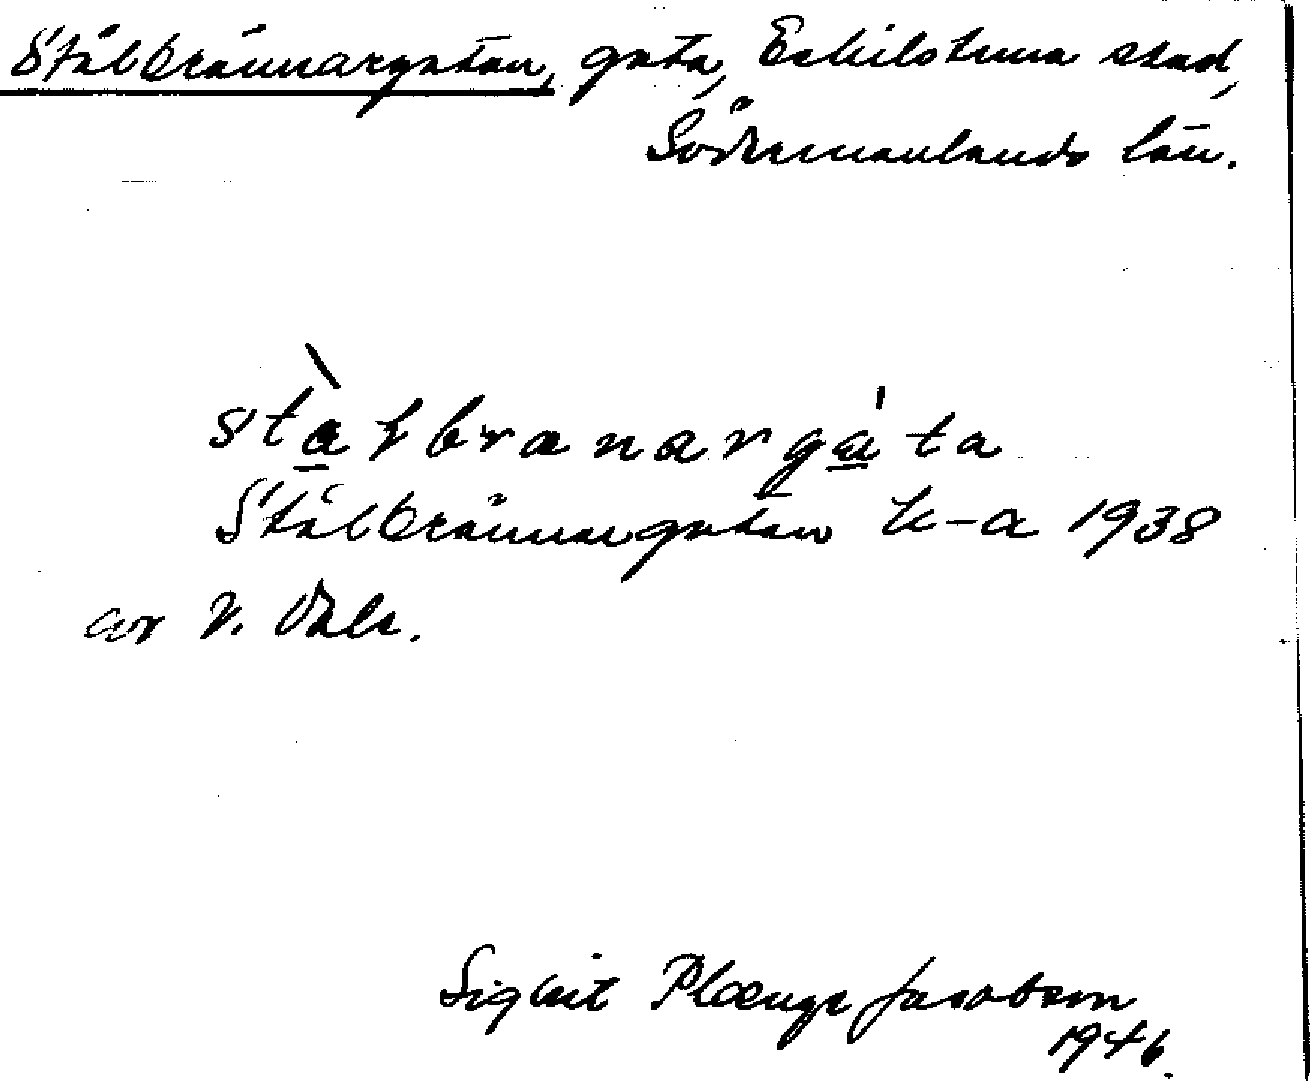 Stålbrännargatan, gata, Eskilstuna stad,
Södermanlands län.
stàlbranargáta
Stålbrännargatan k-a 1938
av V. Ohls.
Sigbrit Plænge Jacobson
1946.